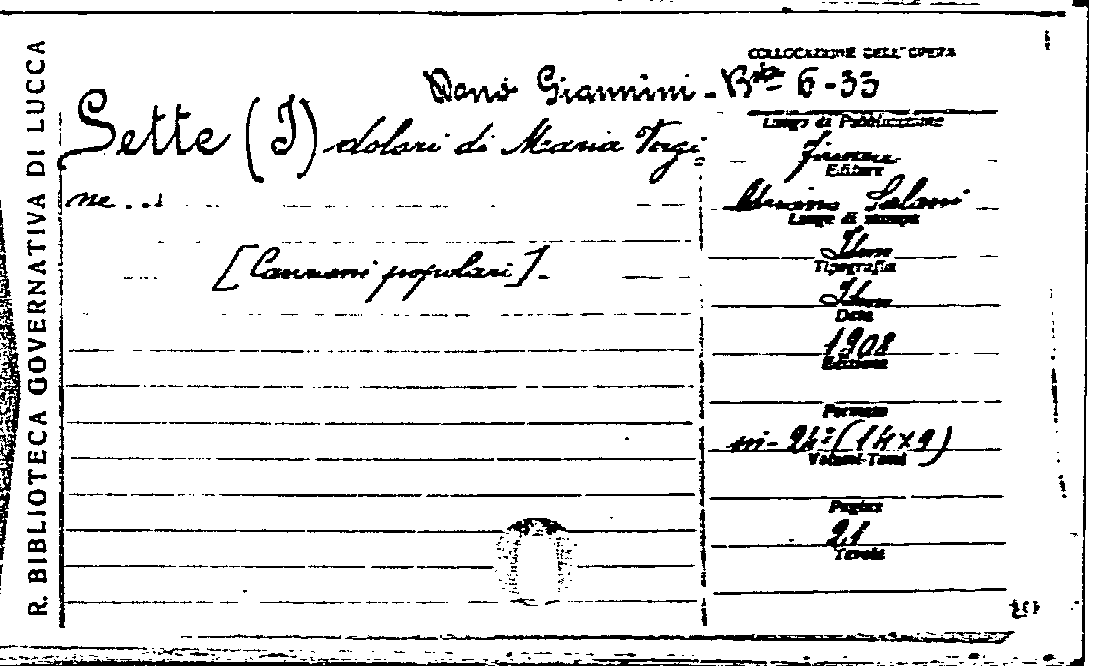 R. BIBLIOTECA GOVERNATIVA DI LUCCA
COLLOCAZIONE DELL'OPERA
Dono Giannini - Bta 6-33
Sette (I) dolori di Maria Vergi-
ne...
[Canzoni popolari]-
Luogo di Pubblicazione
Firenze
Editore
Adriano Salani
Luogo di stampa
Idem
Tipografia
Idem
Data
1908
Edizione
Formato
in-24º (14x9)
Volumi-Tomi
Pagine
21
Tavole